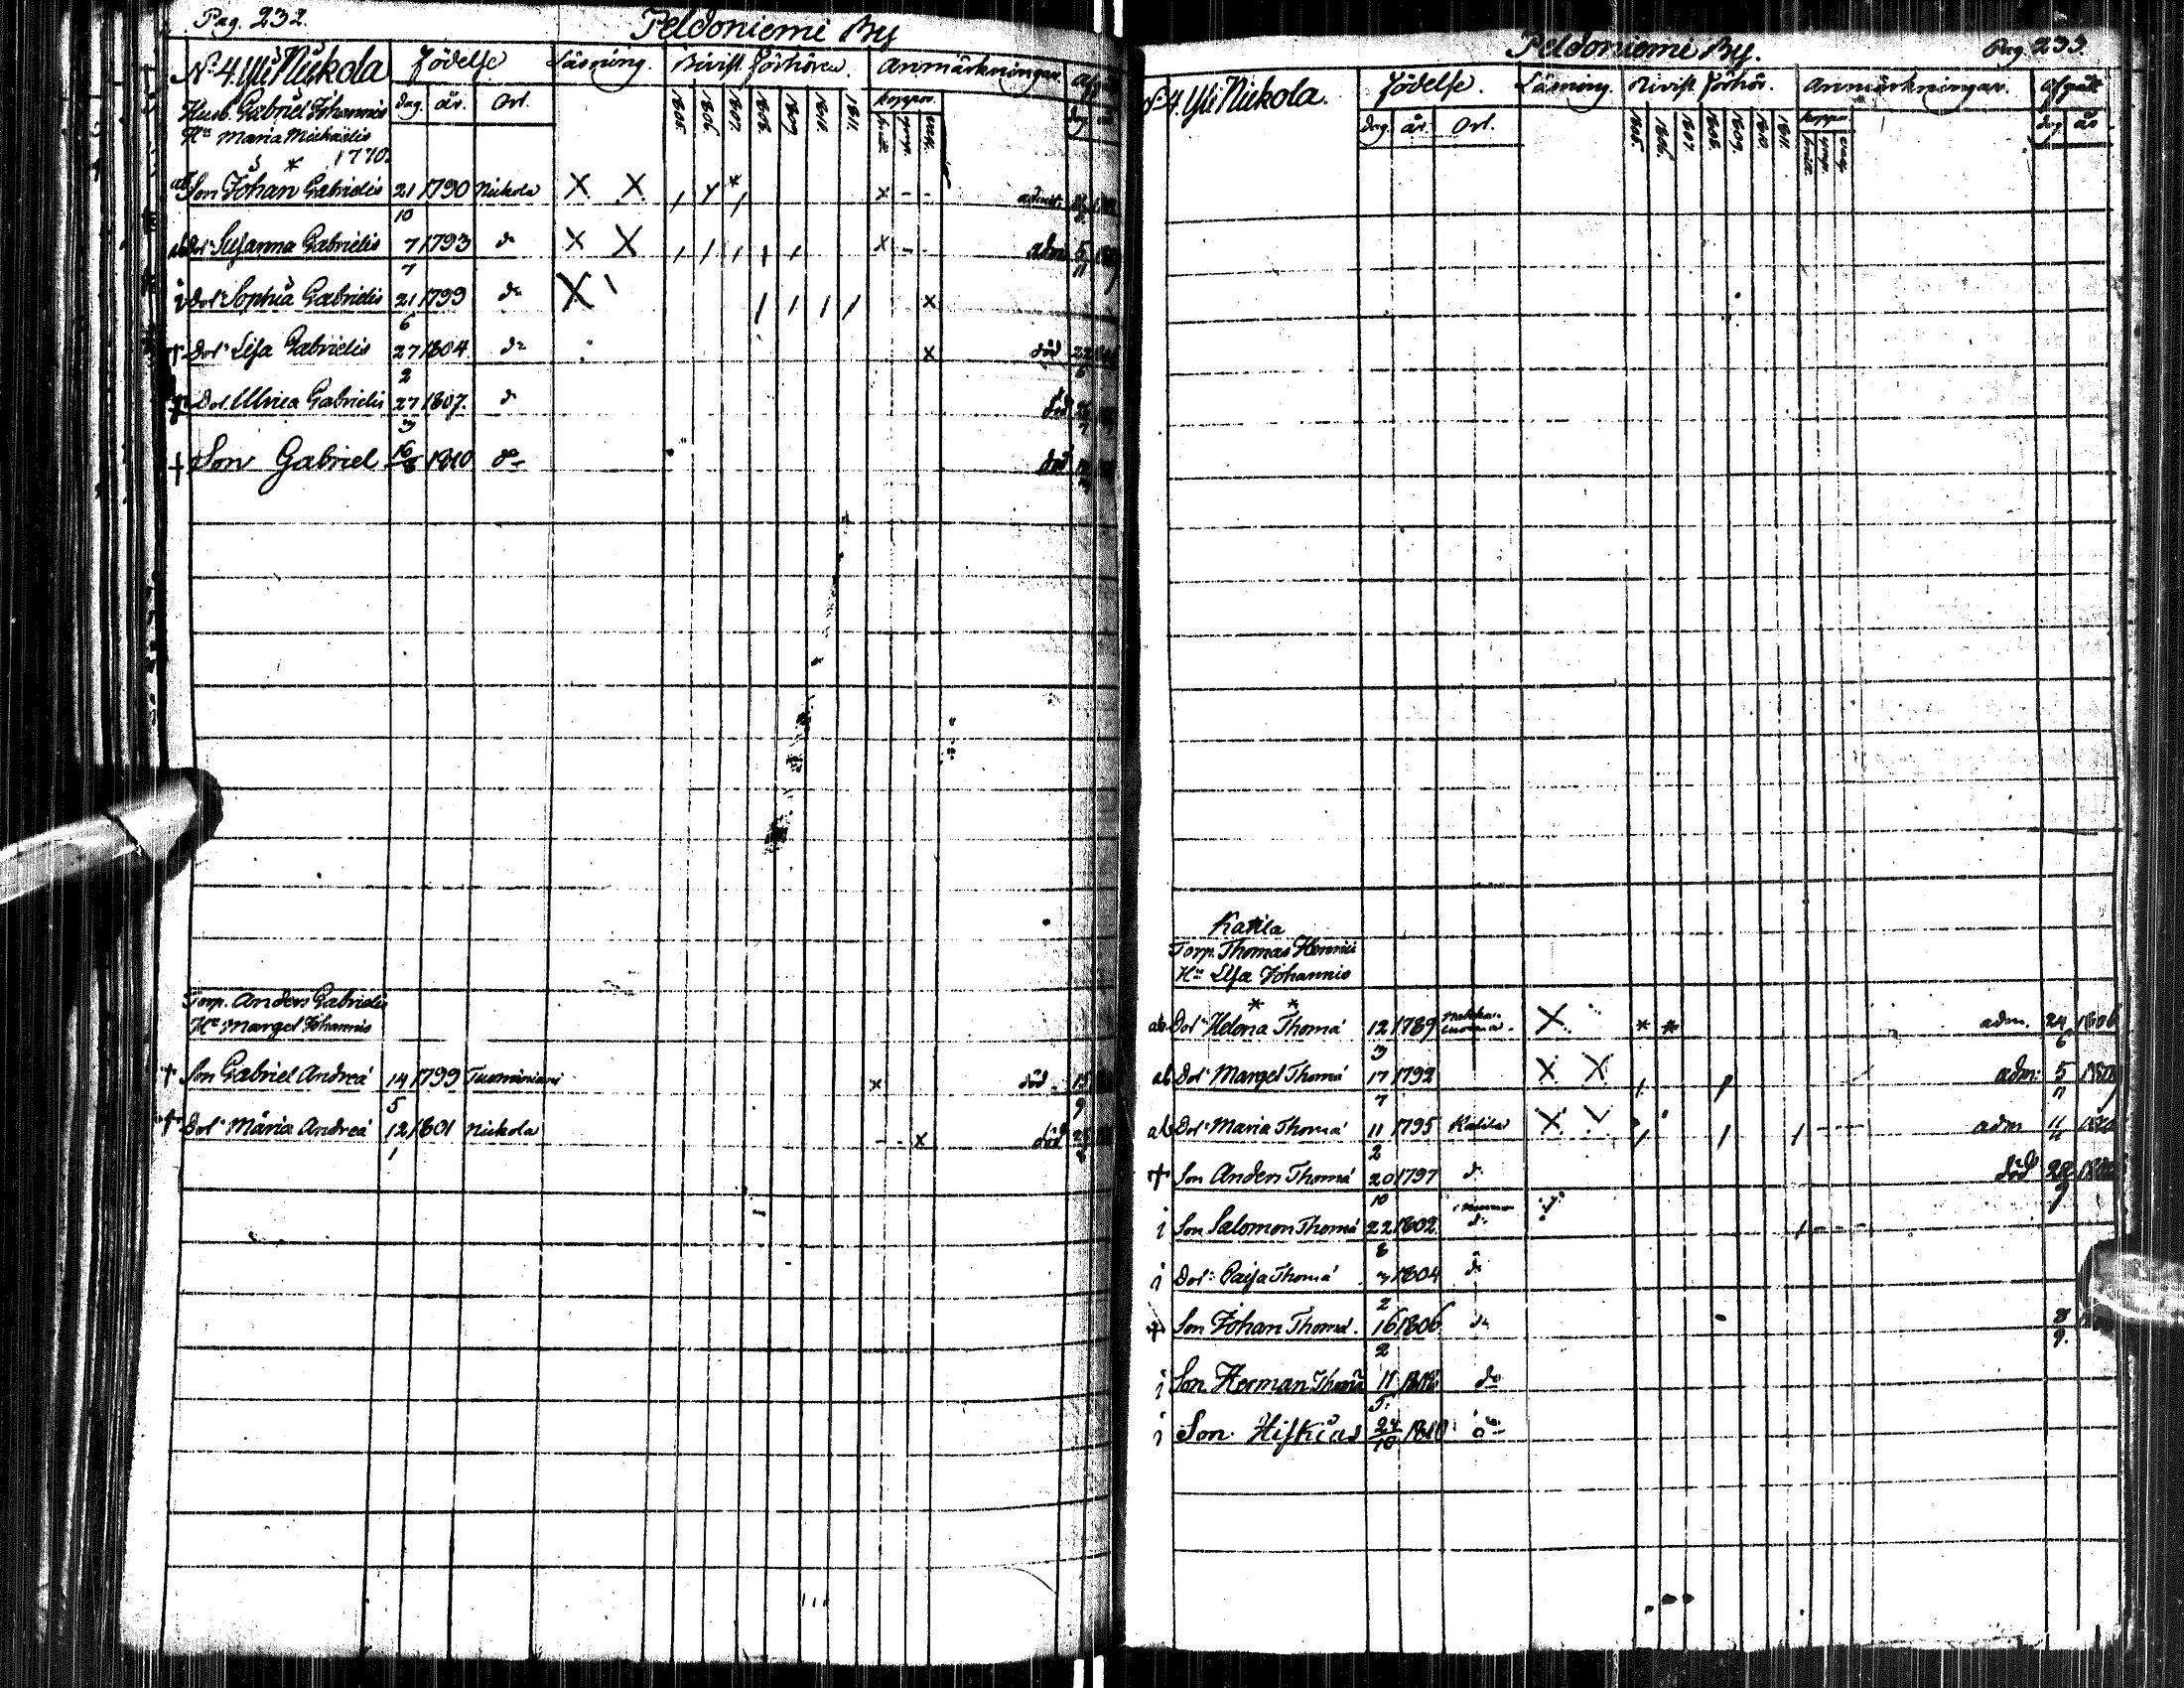 Pag. 232. Peldoniemi By
N 4. Yli Niskola Födelse Läsning. Förhören. Anmärkningar.
dag. år. Ort. 1805. 1806. 1807. 1808. 1809. 1810. 1811. koppor.
Husb. Gabriel Johannis
Hu Maria Michaelis
1770.
Son Johan Gabrielis 21 1790 Niskola X X X - -
10
Dot. Susanna Gabrielis 7 1793 do X X X - - adm 5
7 11
i Dot. Sophia Gabrielis 21 1799 do X X
6
† Dot. Lisa Gabrielis 27 1804 do X död 22
2 6
† Dot. Ulrica Gabrielis 27 1807. do död
3
† Son Gabriel 16/8 1810 do död
Torp. Anders Gabrielis
Hu Marget Johannis
† Son Gabriel Andreæ 14 1799 X död
5 9
† Dot. Maria Andreæ 12 1801 Niskola - - X död
1
Peldoniemi By. Pag. 233.
N 4. Yli Niskola. Födelse. Läsning. Förhör. Anmärkningar. Afgått
dag. år. Ort. 1805. 1806. 1807. 1808. 1809. 1810 1811 koppor dag år
Katila
Torp. Thomas Henrici
Hu Lisa Johannis
ab Dot. Helena Thomæ 12 1789 X adm. 24 1806
3 6
ab Dot. Marget Thomæ 17 1792 X X adm: 5
7 11
ab Dot. Maria Thomæ 11 1795 Katila X adm 11
2
† Son Anders Thomæ 20 1797 do död
10 9
i Son Salomon Thomæ 22 1802 do
8
i Dot. Caisa Thomæ 3 1804 do
2
† Son Johan Thomæ. 16 1806 do 8
2 9.
i Son Herman Thomæ 11 do
5.
i Son Hiskias 24/10 1810 do